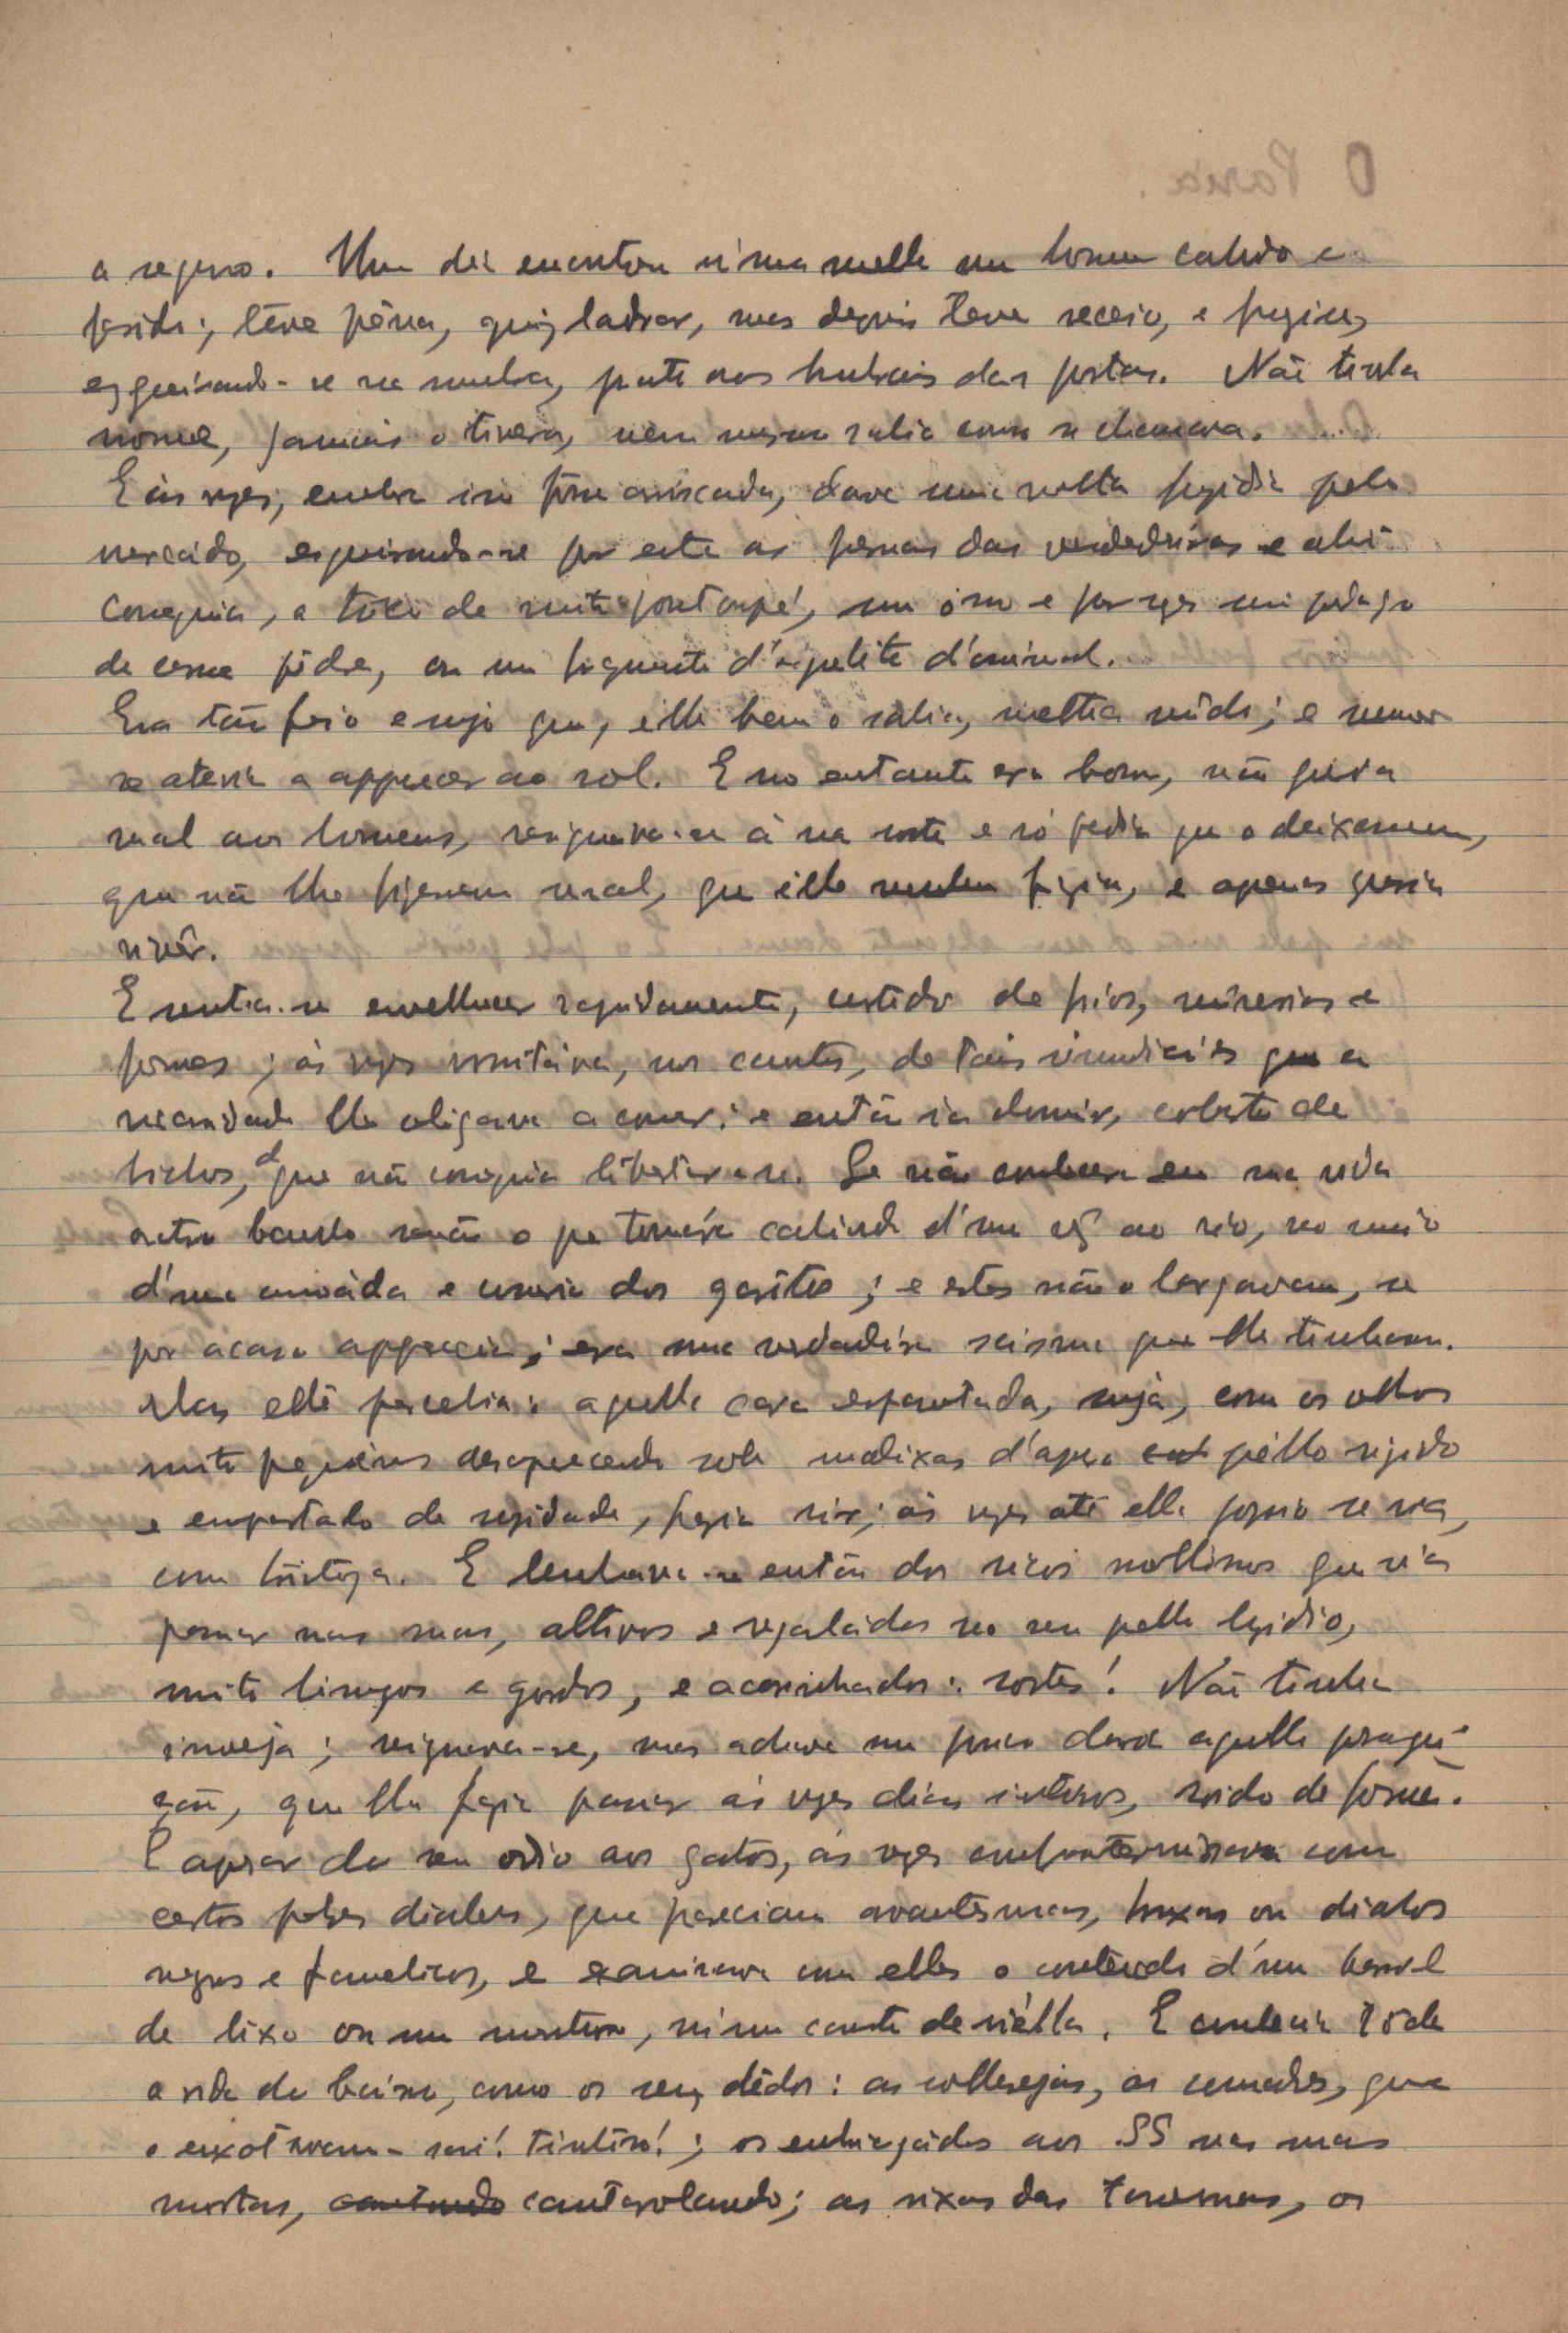 a seguro. Um dia encontrou n'uma viella um homem cahido e
ferido; têve pêna, quiz ladrar, mas depois teve receio, e fugiu,
esgueirando-se na sombra, junto aos humbraes das portas. Não tinha
nome, jamais o tivera, nem mesmo sabia como se chamava.
E ás vezes, embora isso fôsse arriscado, dava uma volta fugidia pelo
mercado, esgueirando-se por entre as pernas das vendedeiras e ahi
conseguia, a trôco de muito pontapé, um ôsso e por vezes um pedaço
de carne pôdre, ou um
Era tão feio e sujo que, elle bem o sabia, mettia mêdo; e nunca
se atevia a apparecer ao sol. E no entanto era bom, não queria
mal aos homens, resignava-se á sua sorte e só pedia que o deixassem,
que não lhe fizessem mal, que elle nenhum fazia, e apenas queria
vivêr.
E sentia-se envelhecer rapidamente, curtido de frios, miserias e
fomes; ás vezes vomitáva, nos cantos, de tais immundicies que a
necessidade lhe obrigava a comer; e então ia dormir, coberto de
bichos, de que não conseguia libertar-se. Se não conhecera em sua vida
outro banho senão o que tomára cahindo d'uma vez ao rio, no meio
d'uma assoáda e correria dos garôtos; e estes não o largavam, se
por acaso apparecia; era uma verdadeira scisma que lhe tinham.
Mas elle percebia: aquella cara espantada, suja, com os olhos
muito pequenos desapparecendo sob madeixas d'aquelle pêllo rijido
e empastado de sugidade, fazia rir; ás vezes até elle proprio se ria,
com tristeza. E lembrava-se então dos ricos molossos que via
passar nas ruas, altivos e regalados no seu pello luzidio,
muito limpos e gordos, e acarinhados: sortes! Não tinha
inveja; resignava-se, mas achava um pouco dura aquella
que lhe fazia passar ás vezes dias inteiros, roido de fome.
E apesar do seu odio aos gatos, ás vezes confraternisava com
certos pobres diabos, que pareciam avantesmas, bruxas ou diabos
negros e famelicos, e examinava com elles o conteudo d'um barril
de lixo ou um monturo, n'um canto de viélla. E conhecia tôda
a vida de baixo, como os seus dêdos: as collarejas, as comadres, que
o enxotavam - sai! tinhôso!; os embriagádos aos SS nas ruas
mortas, cantando cantarolando; as rixas das tavernas, os